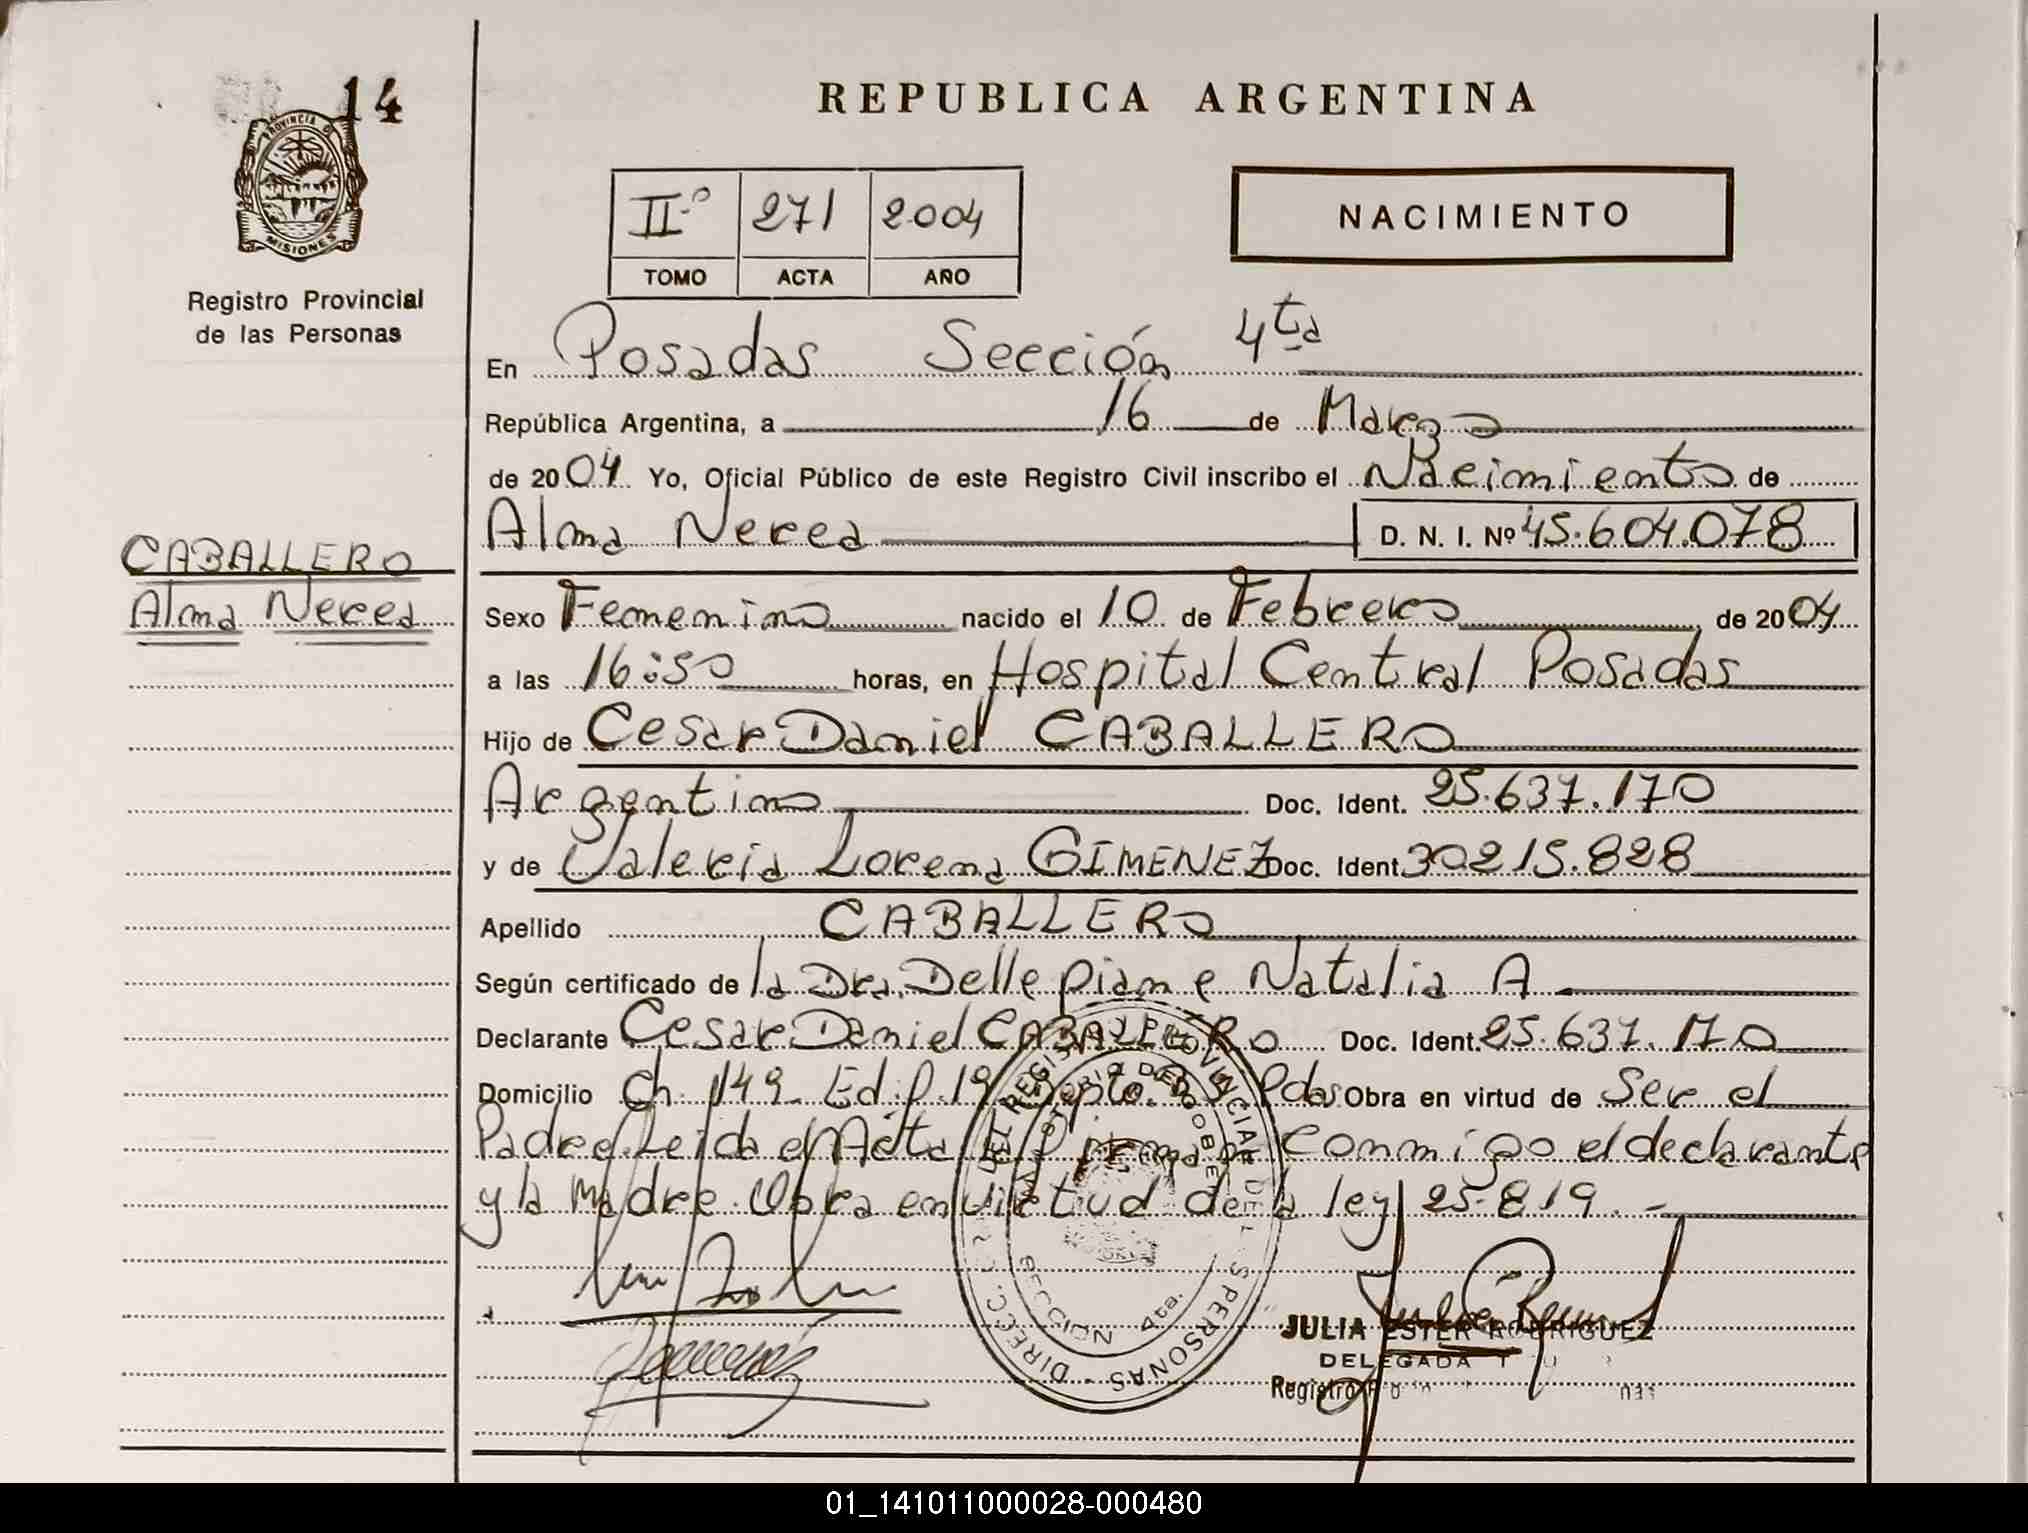 14
PROVINCIA DE
MISIONES
Registro Provincial
de las Personas
CABALLERO
Alma Nerea
REPUBLICA ARGENTINA
IIº 271 2004
TOMO ACTA AÑO
NACIMIENTO
En Posadas Sección 4ta
República Argentina, a 16 de Marzo
de 2004 Yo, Oficial Público de este Registro Civil inscribo el Nacimiento de
Alma Nerea D. N. I. Nº 45.604.078
Sexo Femenino nacido el 10 de Febrero de 2004
a las 16:50 horas, en Hospital Central Posadas
Hijo de Cesar Daniel CABALLERO
Argentino Doc. Ident. 25.637.170
y de Valeria Lorena GIMENEZ Doc. Ident. 30215.828
Apellido CABALLERO
Según certificado de la Dra. Dellepiane Natalia A.
Declarante Cesar Daniel CABALLERO Doc. Ident. 25.637.170
Domicilio Ch. 149 Edif. 19 Depto. Pdas Obra en virtud de Ser el
Padre. Leida el Acta la firman conmigo el declarante
y la Madre. Obra en virtud de la ley 25.819.-
DIREC. DEL REGISTRO PROVINCIAL DE LAS PERSONAS
SECCION 4ta.
JULIA ESTER RODRIGUEZ
DELEGADA
Registro
01_141011000028-000480